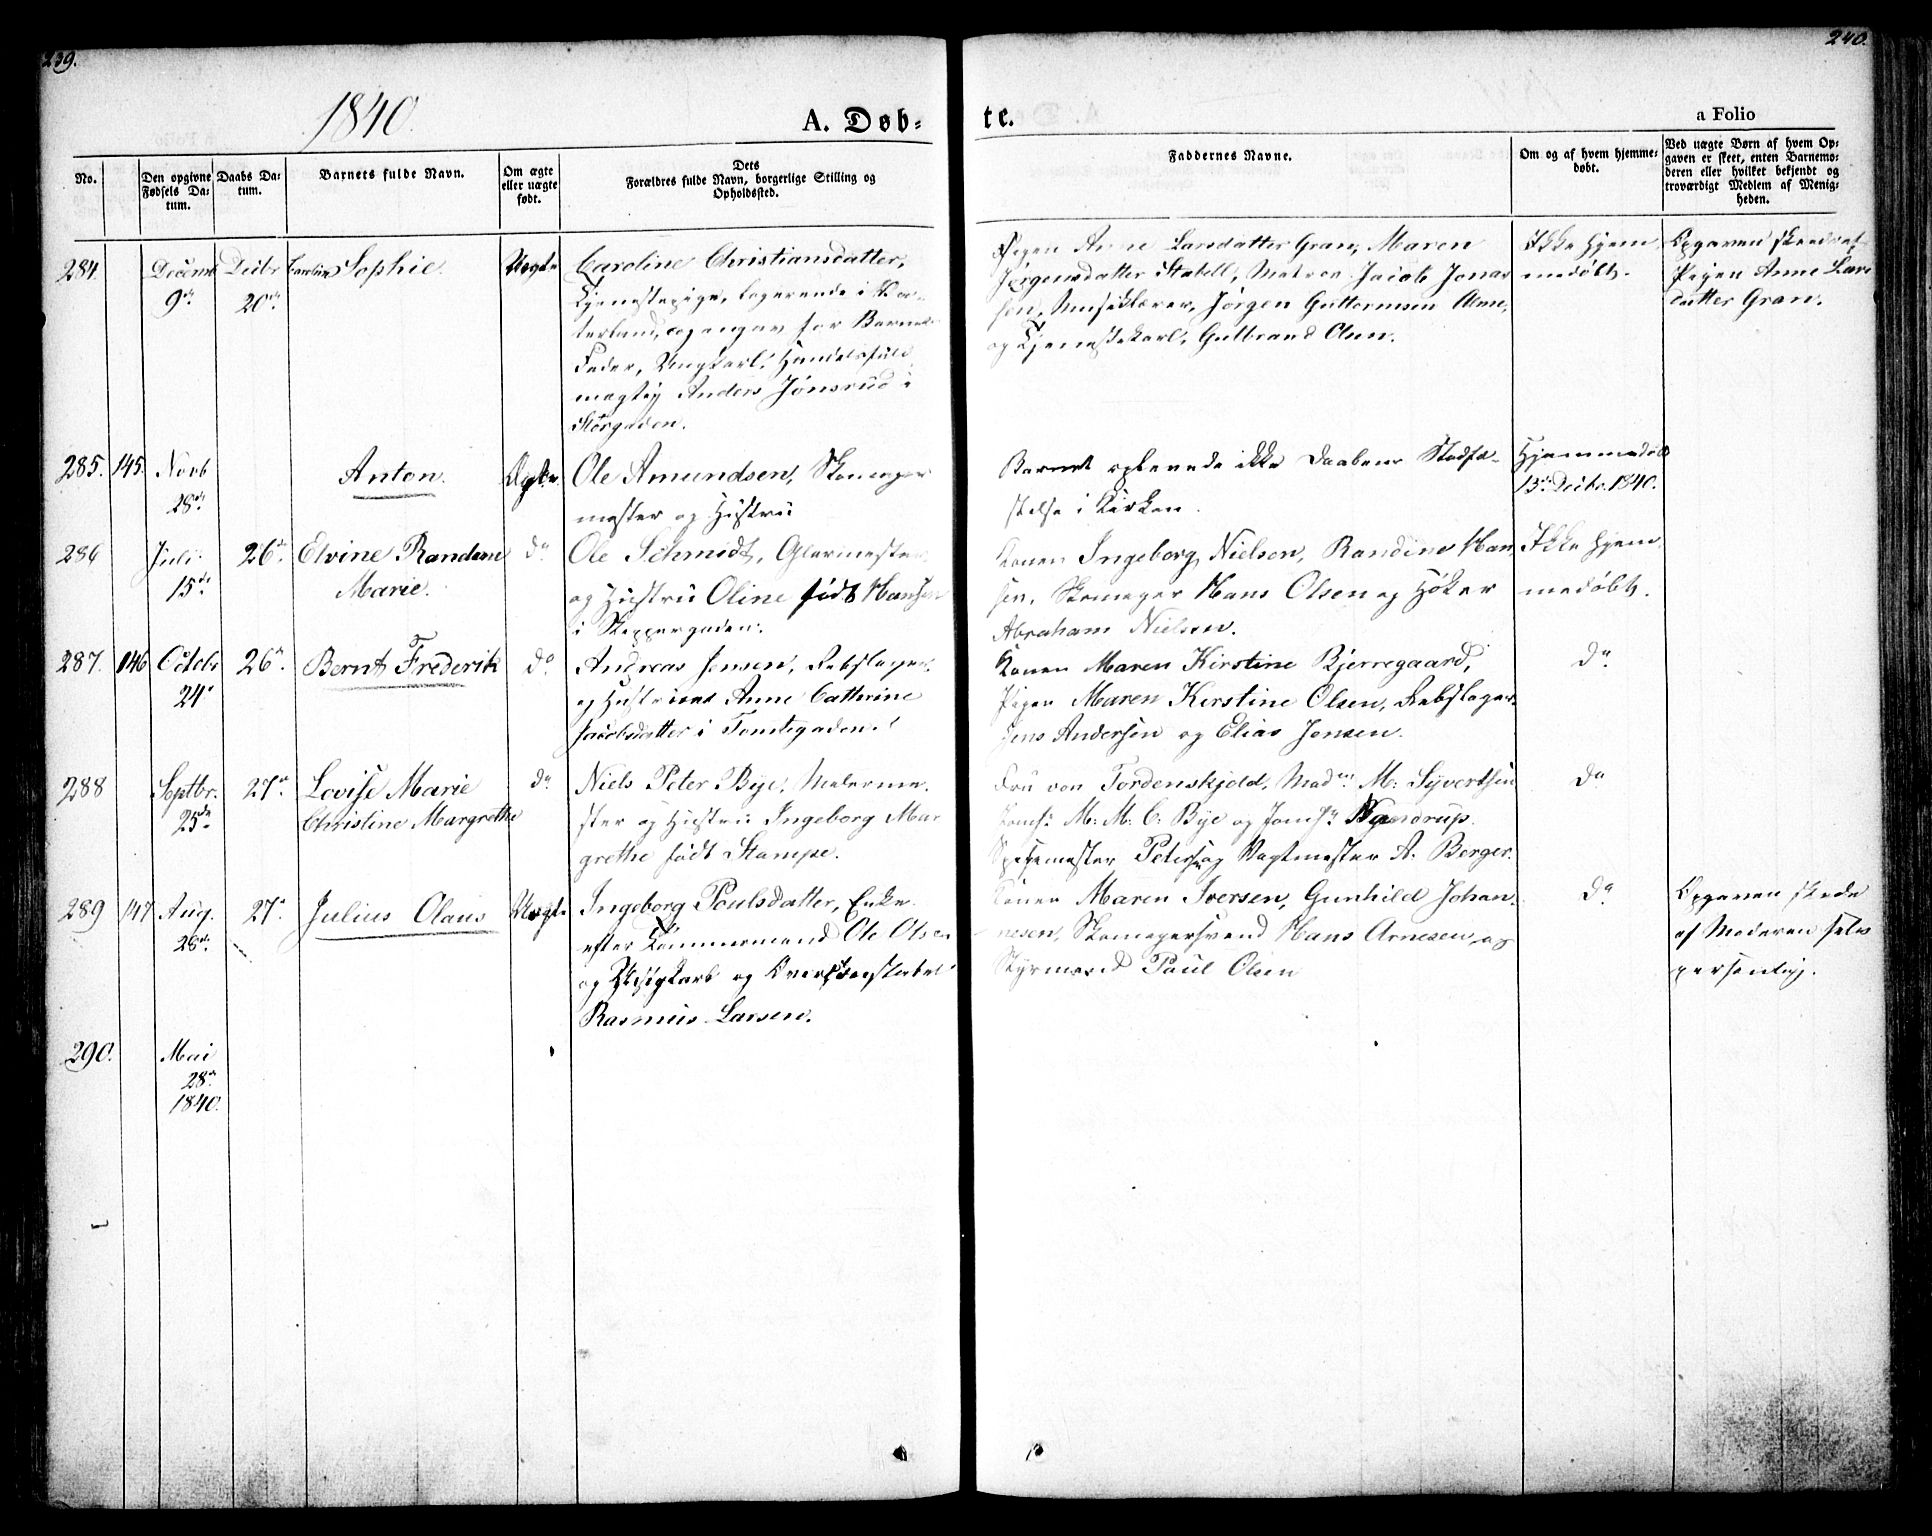 239.
240.
1840.
A. Døb-
te.
a Folio
No.
Den opgivne Fødsels Da-tum.
Daabs Da-tum.
Barnets fulde Navn.
Om ægte eller uægte født.
Dets
Forældres fulde Navn, borgerlige Stilling og
Opholdssted.
Faddernes Navne.
Om og af hvem hjemme-døbt.
Ved uægte Børn af hvem Op-
gaven er skeet, enten Barnemo-
deren eller hvilket bekjendt og
troværdigt Medlem af Menig-
heden.
284.
Decemb 9de
Decbr 20de
Caroline Sophie.
Uægte
Caroline Christiansdatter,
Tjenestepige, logerende i Va-
terland, opgav for Barnets
Fader, Ungkarl, Handelsfuld
mægtig Anders Jonsrud i
Storgaden.
Pigen Anne Larsdatter Gran, Maren
Jørgensdatter Stabell, Jacob Jonas
sen, Musiklærer, Jørgen Guttormsen
og Tjenestekarl, Gulbrand Olsen.
Ikke hjem
medøbt.
Opgaven skeed af
Pigen Anne Lars
datter Gran.
285. 145.
Novb 28de
Anton.
Ægte
Ole Amundsen, Skomager
mester og Hustru
Barnet oplevede ikke Daabens Stadfæ-
stelse i Kirken.
Hjemmedøbt
13de Decbr. 1840.
286
Juli 15de
26de
Elvine Randine
Marie.
do
Ole Schmidt, Glarmester
og Hustru Oline født Hansen
i Skippergaden.
Konen Ingeborg Nielsen, Randine Han
sen, Skomager Hans Olsen og Høker
Abraham Nielsen.
Ikke hjem
medøbt.
287. 146
Octobr 24de
26de.
Bernt Frederik
do
Andreas Jensen, Rebslager
og Hustrue Anne Cathrine
Jacobsdatter i Tomtegaden.
Konen Maren Kirstine Bjerregaard,
Pigen Maren Kirstine Olsen, Rebslager
Jens Andersen og Elias Jensen.
do
288
Septbr. 25de
27de
Lovise Marie
Christine Margrethe
do
Niels Peter Bye, Malerme-
ster og Hustru Ingeborg Mar
grethe født Stampe.
Fru von Tordenskjold, Madm M. Syvertsen
Jomf. M. M. C. Bye og Jomf.
Petersen og Vagtmester A. Berger.
do
289 147
Aug. 28de
27de
Julius Olaus
Uægte
Ingeborg Poulsdatter, Enke
efter Tømmermand Ole Olsen
og Ungkarl og
Rasmus Larsen.
Konen Maren Iversen, Gunhild Johan
nesen, Skomagersvend Hans Arnesen og
Styrmand Paul Olsen
do
Opgaven skede
af Moderen selv
personlig.
290.
Mai
28de
1840.